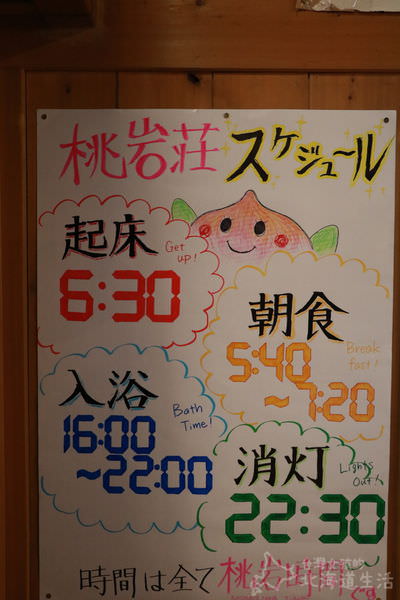 桃岩荘 スケジュール
起床 Get up!
6:30
朝食
5:40 Break fast!
~7:20
入浴
Bath Time!
16:00
~22:00
消灯 Lights Out!
22:30
時間は全て桃岩時間です
北海道生活